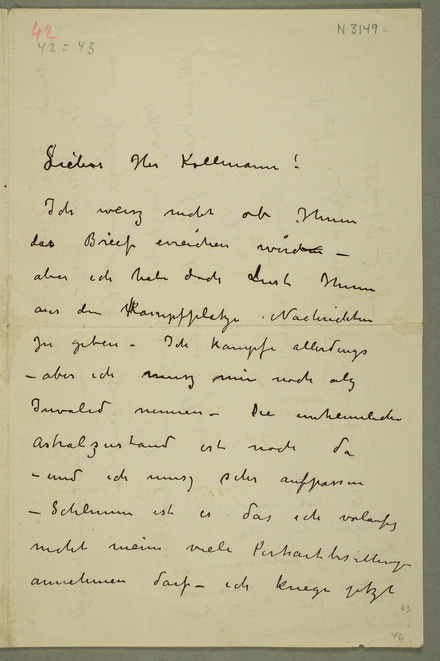 42
42 = 43
N 3149
Lieber Herr Kollmann!
Ich weisz nicht ob Ihnen
das Brief erreichen würden –
aber ich habe doch Lust Ihnen
aus den Kampfplatze Nachrichten
zu geben – Ich kämpfe allerdings
– aber ich musz mir noch als
Invalid nennen – Die unheimliche
Astralzustand ist noch da
– und ich musz sehr aufpassen
– Schlimm ist es das ich vorläufig
nicht meine viele Portraitbestellungen
annehmen darf – ich kriege jetzt
43
46